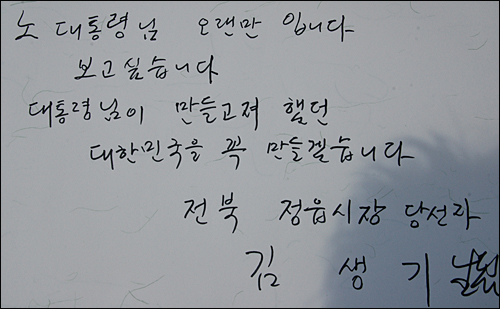 노 대통령님 오랜만 입니다
보고싶습니다
대통령님이 만들고져 했던
대한민국을 꼭 만들겠습니다
전북 정읍시장 당선자
김 생 기